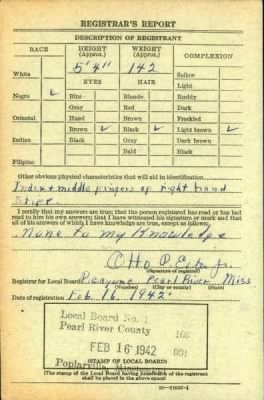 REGISTRAR'S REPORT
DESCRIPTION OF REGISTRANT
RACE HEIGHT (Approx.) WEIGHT (Approx.) COMPLEXION
White 5' 4" 142 Sallow
EYES HAIR Light
Negro ✓ Blue Blonde Ruddy
Gray Red Dark
Oriental Hazel Brown Freckled
Brown ✓ Black ✓ Light brown ✓
Indian Black Gray Dark brown
Bald Black
Filipino
Other obvious physical characteristics that will aid in identification
Index & middle fingers of right hand
I certify that my answers are true; that the person registered has read or has had
read to him his own answers; that I have witnessed his signature or mark and that
all of his answers of which I have knowledge are true, except as follows:
None to my Knowledge
Otto P. Jr.
(Signature of registrar)
Registrar for Local Board Picayune Pearl River Miss
(Number) (City or county) (State)
Date of registration Feb. 16, 1942.
Local Board No. 1
Pearl River County
FEB 16 1942
Poplarville,
(STAMP OF LOCAL BOARD)
(The stamp of the Local Board having jurisdiction of the registrant
shall be placed in the above space)